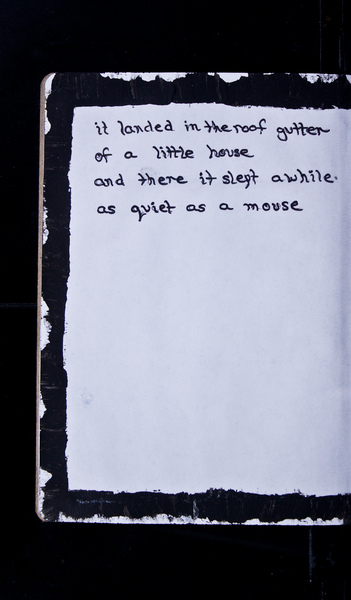 it landed in the roof gutter
of a little house
and there it slept awhile.
as quiet as a mouse